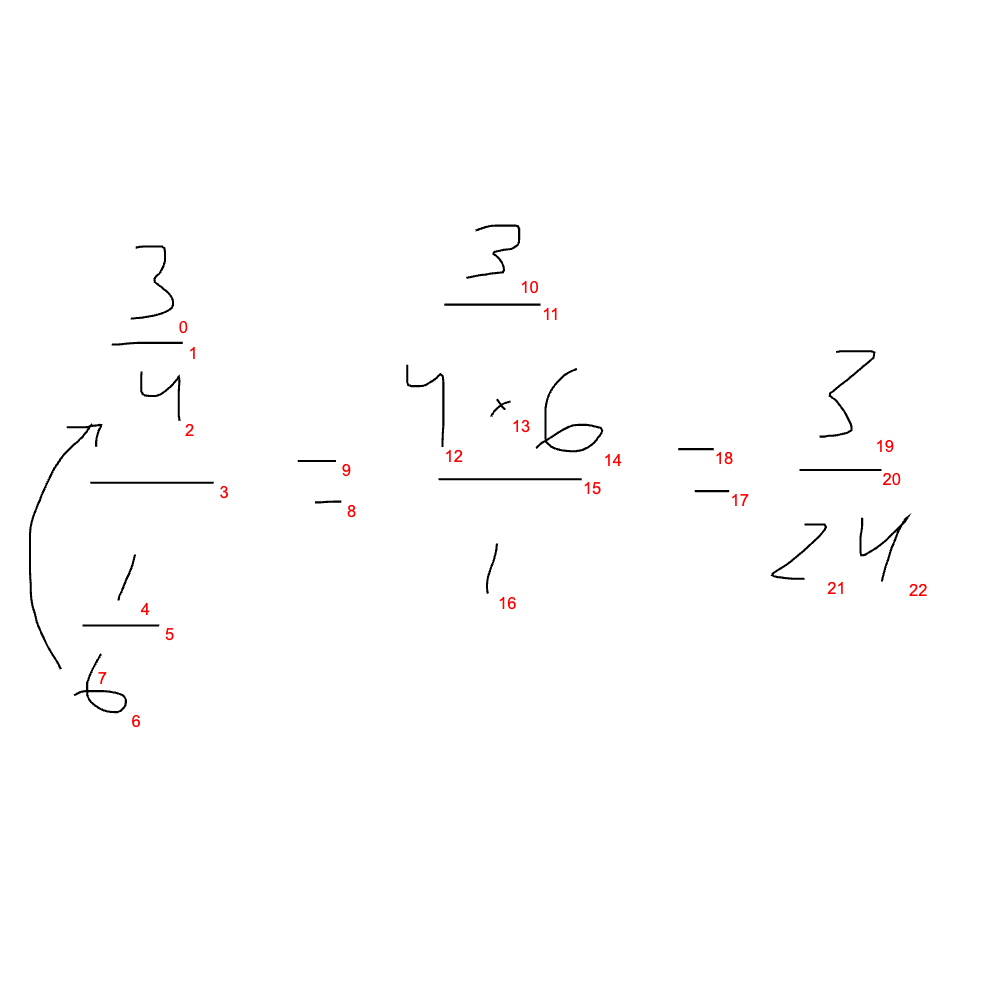 3/4 / 1/6 = 3/(4 × 6) / 1 = 3/24
0
1
2
3
4
5
7
6
9
8
10
11
12
13
14
15
16
18
17
19
20
21
22